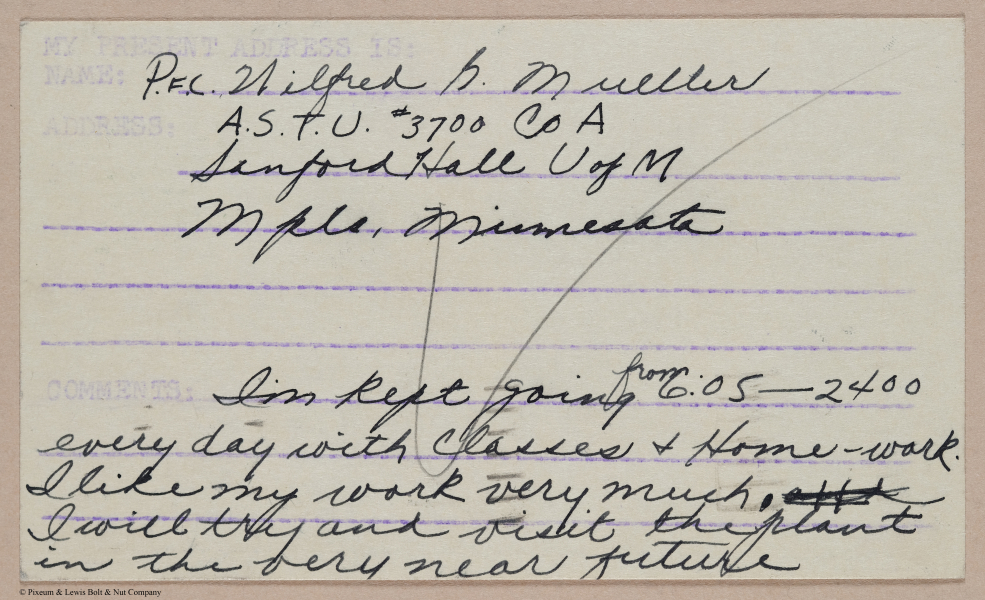 MY PRESENT ADDRESS IS:
NAME: P.F.C. Wilfred G. Mueller
ADDRESS: A.S.T.U. #3700 Co A
Sanford Hall U of M
Mpls, Minnesota
COMMENTS: I'm kept going from 6:05—2400
every day with Classes & Home-work.
I like my work very much.
I will try and visit the plant
in the very near future
© Pixeum & Lewis Bolt & Nut Company